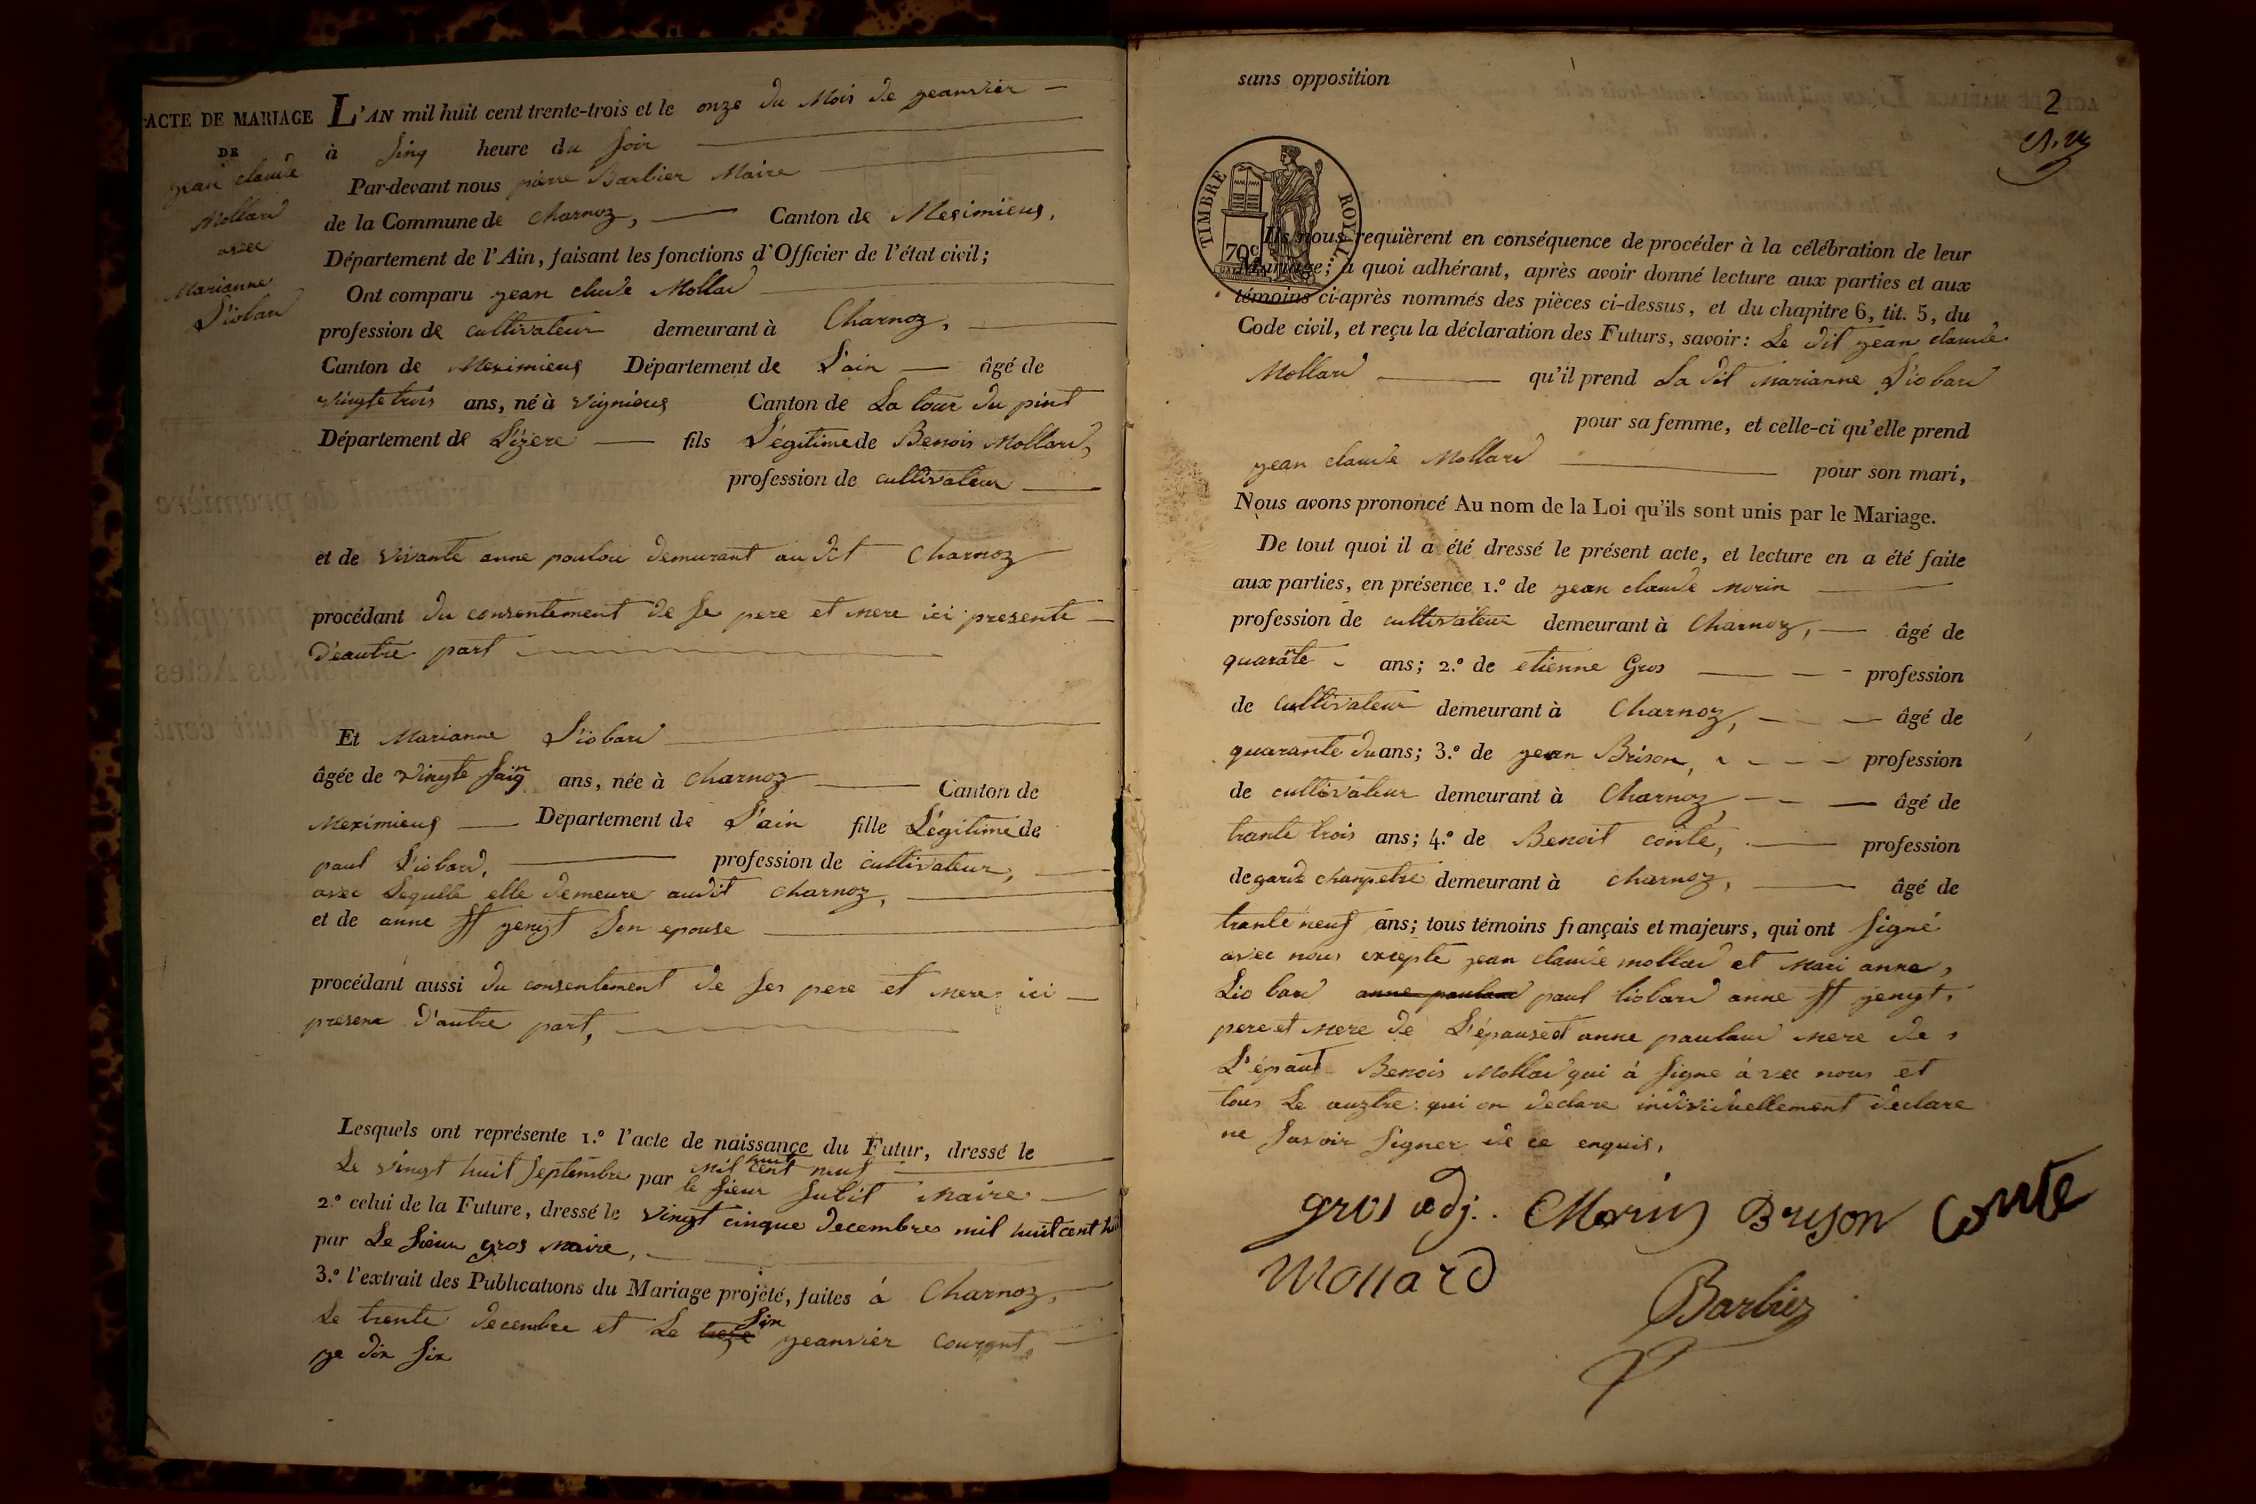 ACTE DE MARIAGE
DE
jean claude
Mollard
avec
Marianne
Liobard
L'AN mil huit cent trente-trois et le onze du Mois de jeanvier
à sinq heure du soir
Par-devant nous pierre Barbier Maire
de la Commune de Charnoz, Canton de Meximieux,
Département de l'Ain, faisant les fonctions d'Officier de l'état civil;
Ont comparu jean claude Mollard
profession de cultivateur demeurant à Charnoz,
Canton de Meximieux Département de L'ain âgé de
vingte trois ans, né à vignieux Canton de La tour du pint
Département de L'izere fils Légitime de Benois Mollard,
profession de cultivateur
et de vivante anne poulou demurant au dit Charnoz
procédant du consentement de se pere et mere ici presente
D'eautre part
Et Marianne Liobard
âgée de vingte sainq ans, née à Charnoz Canton de
Meximieux Département de L'ain fille Légitime de
paul Liobard, profession de cultivateur,
avec Lequelle elle demeure audit Charnoz,
et de anne st jenyt son epouse
procédant aussi du consentement de ses pere et mere ici
presene d'autre part,
Lesquels ont représente 1.º l'acte de naissance du Futur, dressé le
Le vingt huit septembre mil huit cent neuf
par le sieur Jubit Maire
2.º celui de la Future, dressé le vingt cinque decembres mil huit cent
par Le sieur gros Maire,
3.º l'extrait des Publications du Mariage projeté, faites à Charnoz,
Le trente decembre et Le treze six jeanvier courant,
je dix six
sans opposition
2
TIMBRE ROYAL
70c
Ils nous requièrent en conséquence de procéder à la célébration de leur
Mariage; à quoi adhérant, après avoir donné lecture aux parties et aux
témoins ci-après nommés des pièces ci-dessus, et du chapitre 6, tit. 5, du
Code civil, et reçu la déclaration des Futurs, savoir: Le dit jean claude
Mollard qu'il prend La dit Marianne Liobard
pour sa femme, et celle-ci qu'elle prend
jean claude Mollard pour son mari,
Nous avons prononcé Au nom de la Loi qu'ils sont unis par le Mariage.
De tout quoi il a été dressé le présent acte, et lecture en a été faite
aux parties, en présence 1.º de jean claude morin
profession de cultivateur demeurant à Charnoz, âgé de
quarãte ans; 2.º de etienne Gros profession
de cultivateur demeurant à Charnoz, âgé de
quarante du ans; 3.º de jean Brison, profession
de cultivateur demeurant à Charnoz, âgé de
trante trois ans; 4.º de Benoit conte, profession
de garde chanpetre demeurant à charnoz, âgé de
trante neuf ans; tous témoins français et majeurs, qui ont signé
avec nous exepté jean claude mollard et Mari anne,
Lio bard anne poulard paul liobard anne st jenyt,
pere et mere de L'épause et anne paulard mere de,
L'épaut Benois Mollard qui à signe à vec nous et
tous Le auztre qui on declare individuellement declare
ne savoir signer de ce enquis,
gros adj. CMorin Brison Conte
Mollard
Barbier